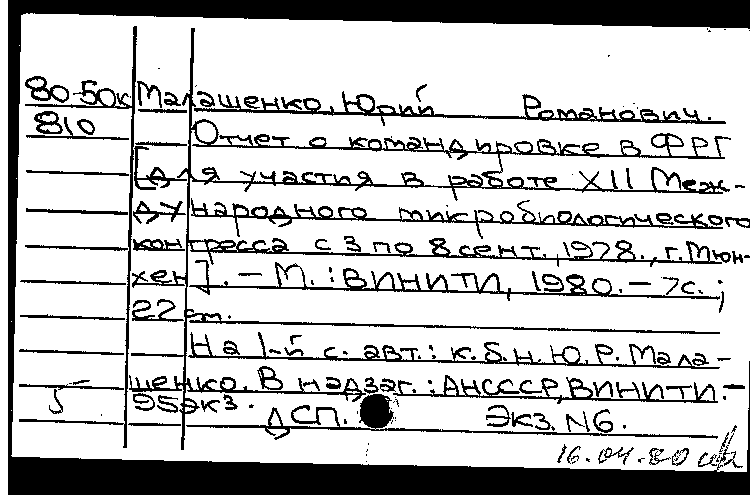 80-50к Малашенко, Юрий Романович.
810 Отчет о командировке в ФРГ
[для участия в работе XII Меж-
дународного микробиологического
конгресса с 3 по 8 сент., 1978., г. Мюн-
хен]. – М.: ВИНИТИ, 1980. – 7с.;
22 см.
На 1-й с. авт.: к.б.н. Ю.Р. Мала-
шенко. В надзаг.: АНСССР, ВИНИТИ. –
5 95экз. ДСП. Экз. N6.
16.04.80